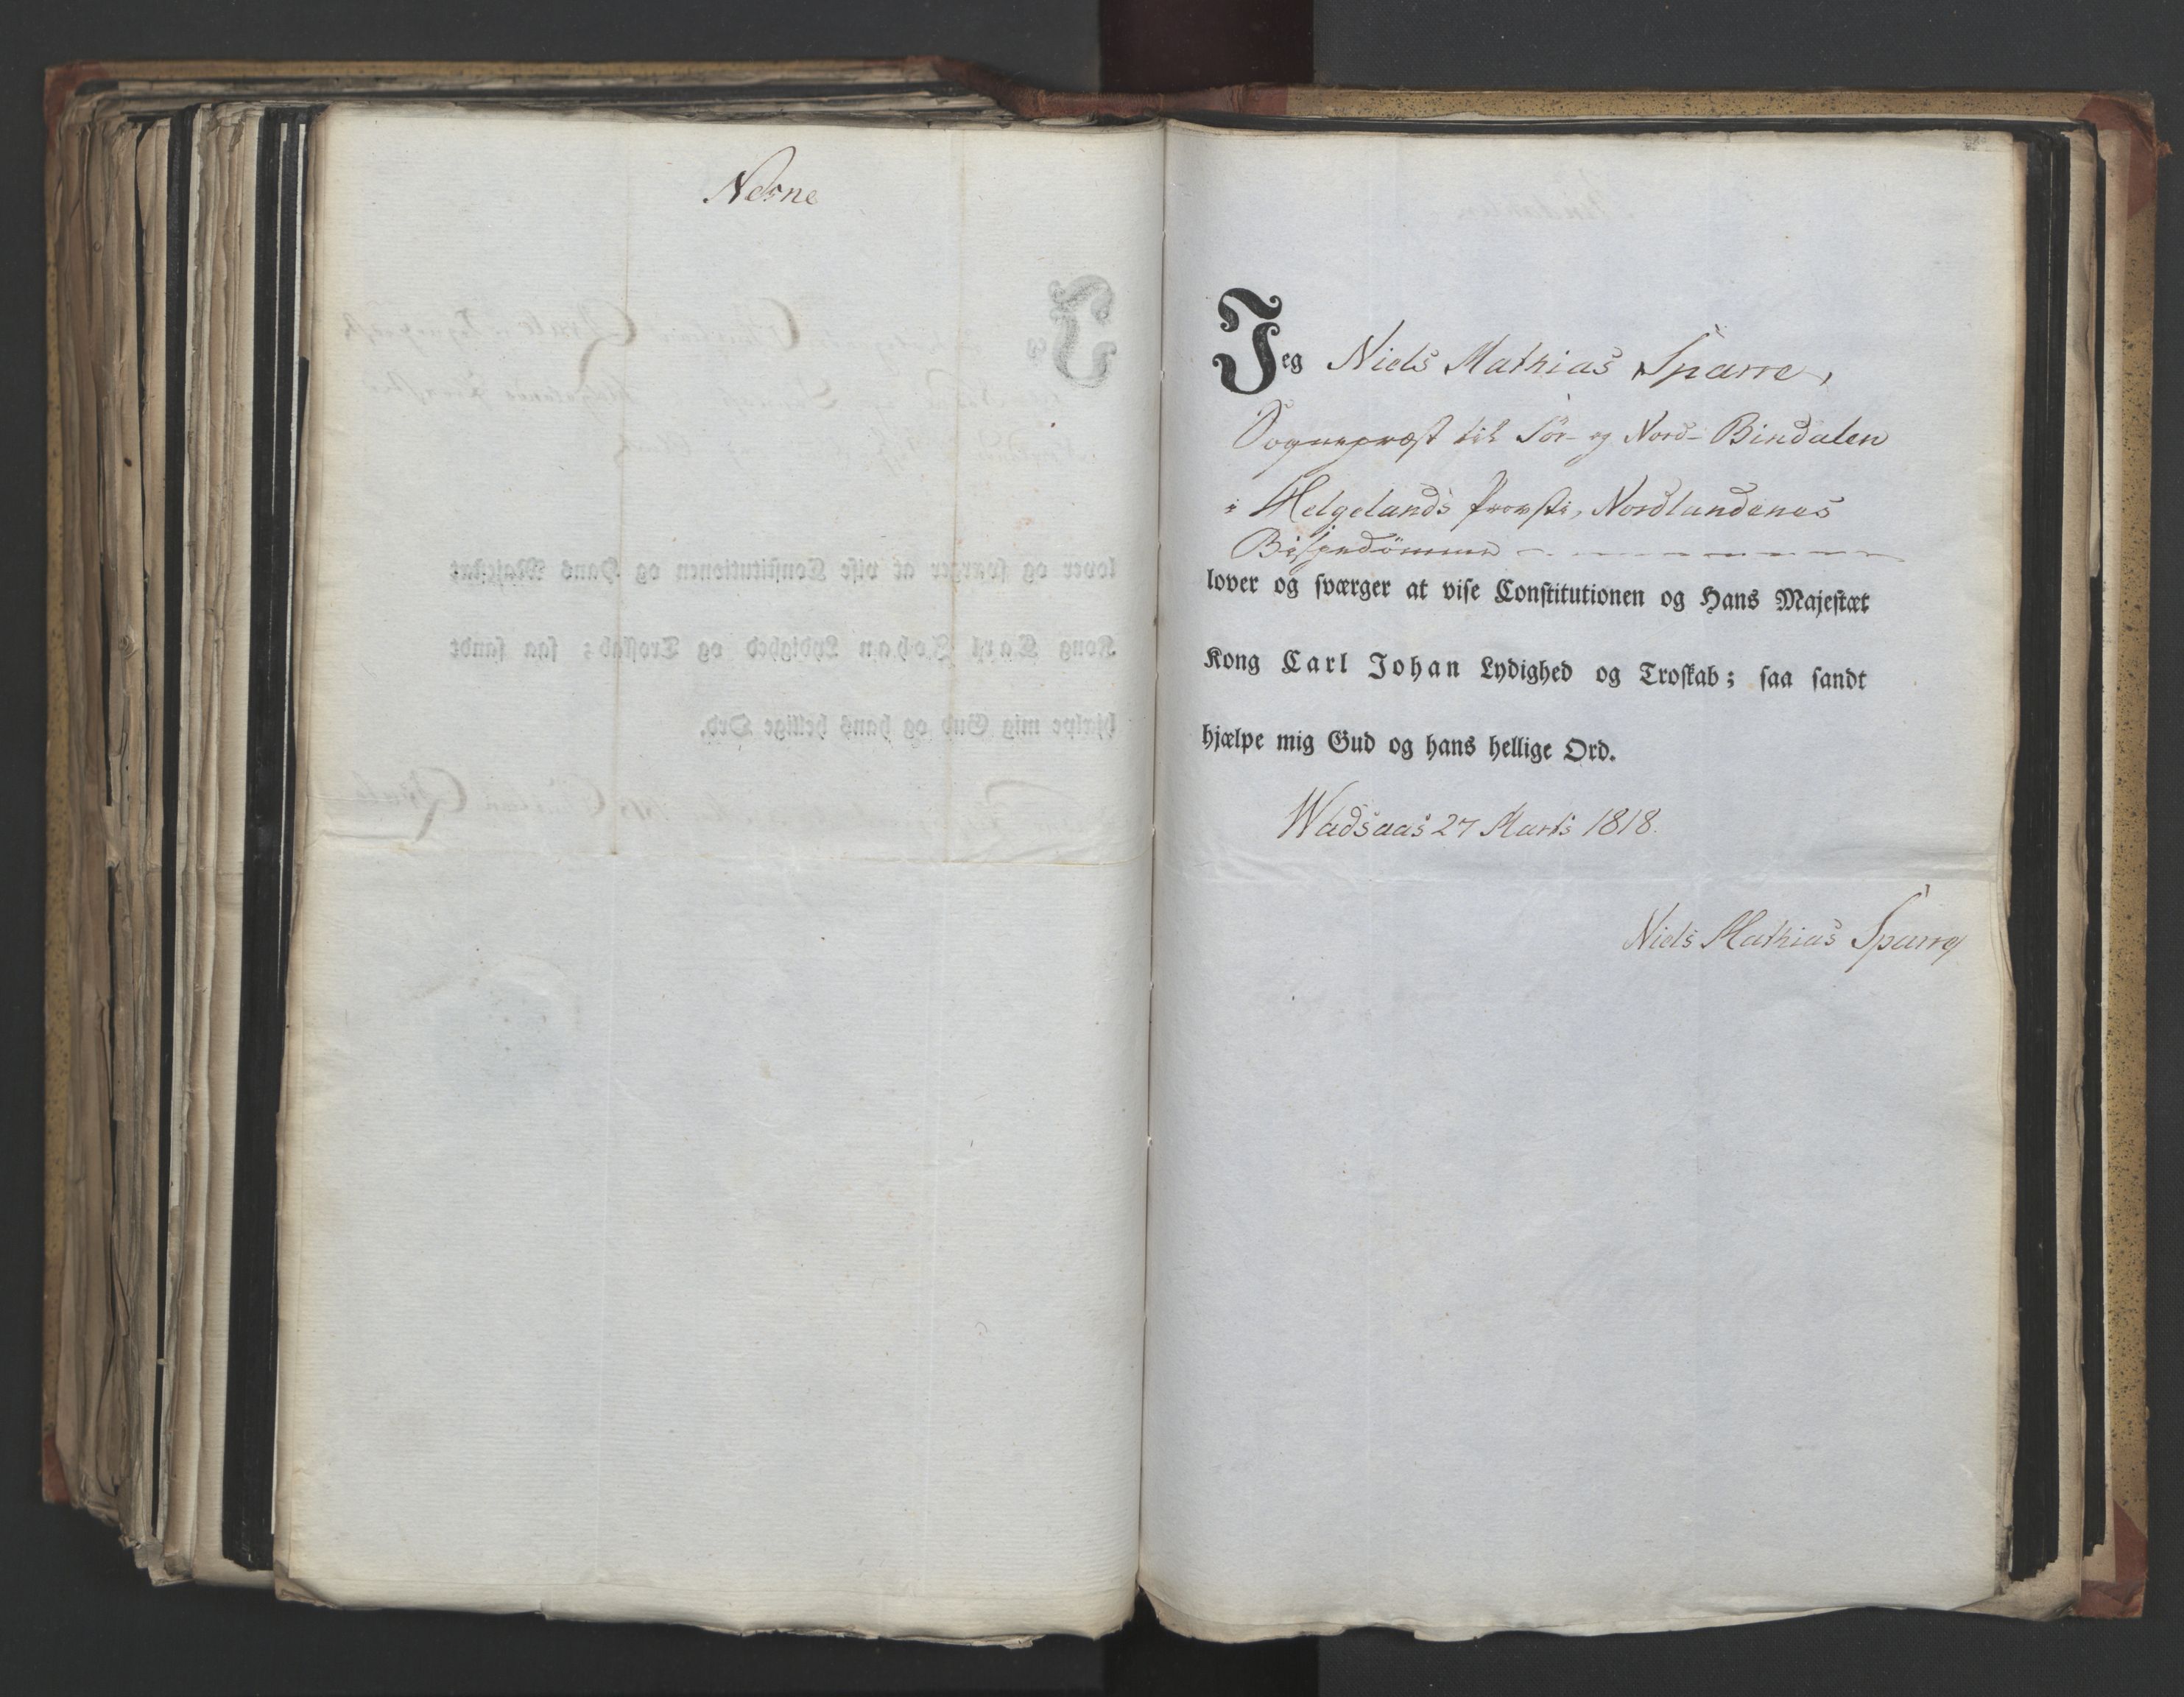 Nesne
Jeg Niels Mathias Sparre,
Sognepræst til Sör- og Nord-Bindalen
i Helgelands Provsti, Nordlandenes
Bispedömme
lover og sværger at vise Constitutionen og Hans Majestæt
Kong Carl Johan Lydighed og Troskab; saa sandt
hjælpe mig Gud og hans hellige Ord.
Wadsaas 27 Marts 1818.
Niels Mathias Sparre